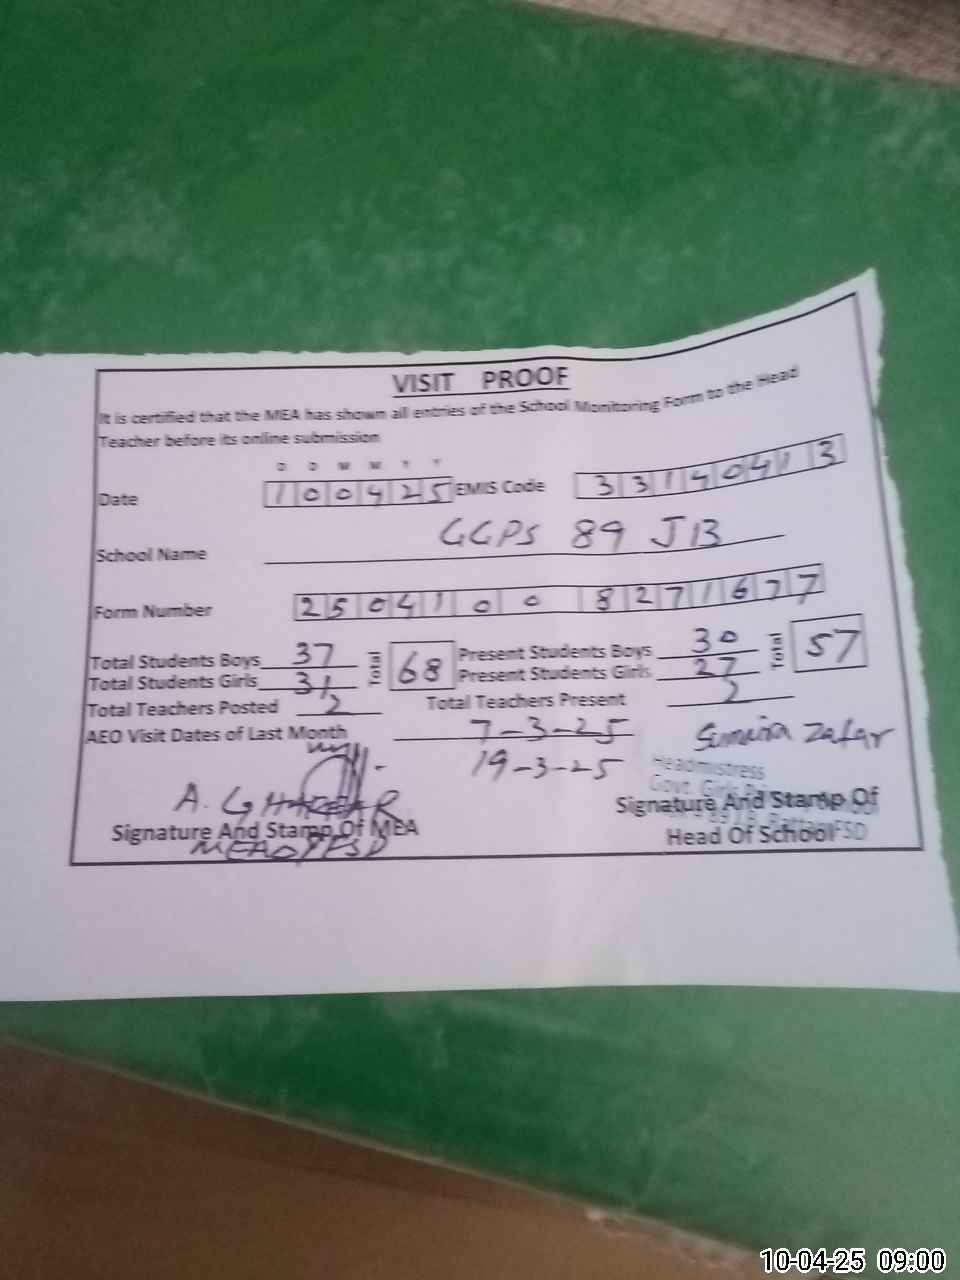 VISIT PROOF
It is certified that the MEA has shown all entries of the School Monitoring Form to the Head
Teacher before its online submission
D D M M Y Y
Date 100425 EMIS Code 33140413
School Name GGPS 89 JB
Form Number 25041008271677
Total Students Boys 37 Total 68 Present Students Boys 30 Total 57
Total Students Girls 31 Present Students Girls 27
Total Teachers Posted 2 Total Teachers Present 2
AEO Visit Dates of Last Month 7-3-25
19-3-25
Sumaira Zafar
Headmistress
Govt. Girls
A. GHAFFAR
Signature And Stamp Of MEA
Signature And Stamp Of
Head Of School
FSD
10-04-25 09:00